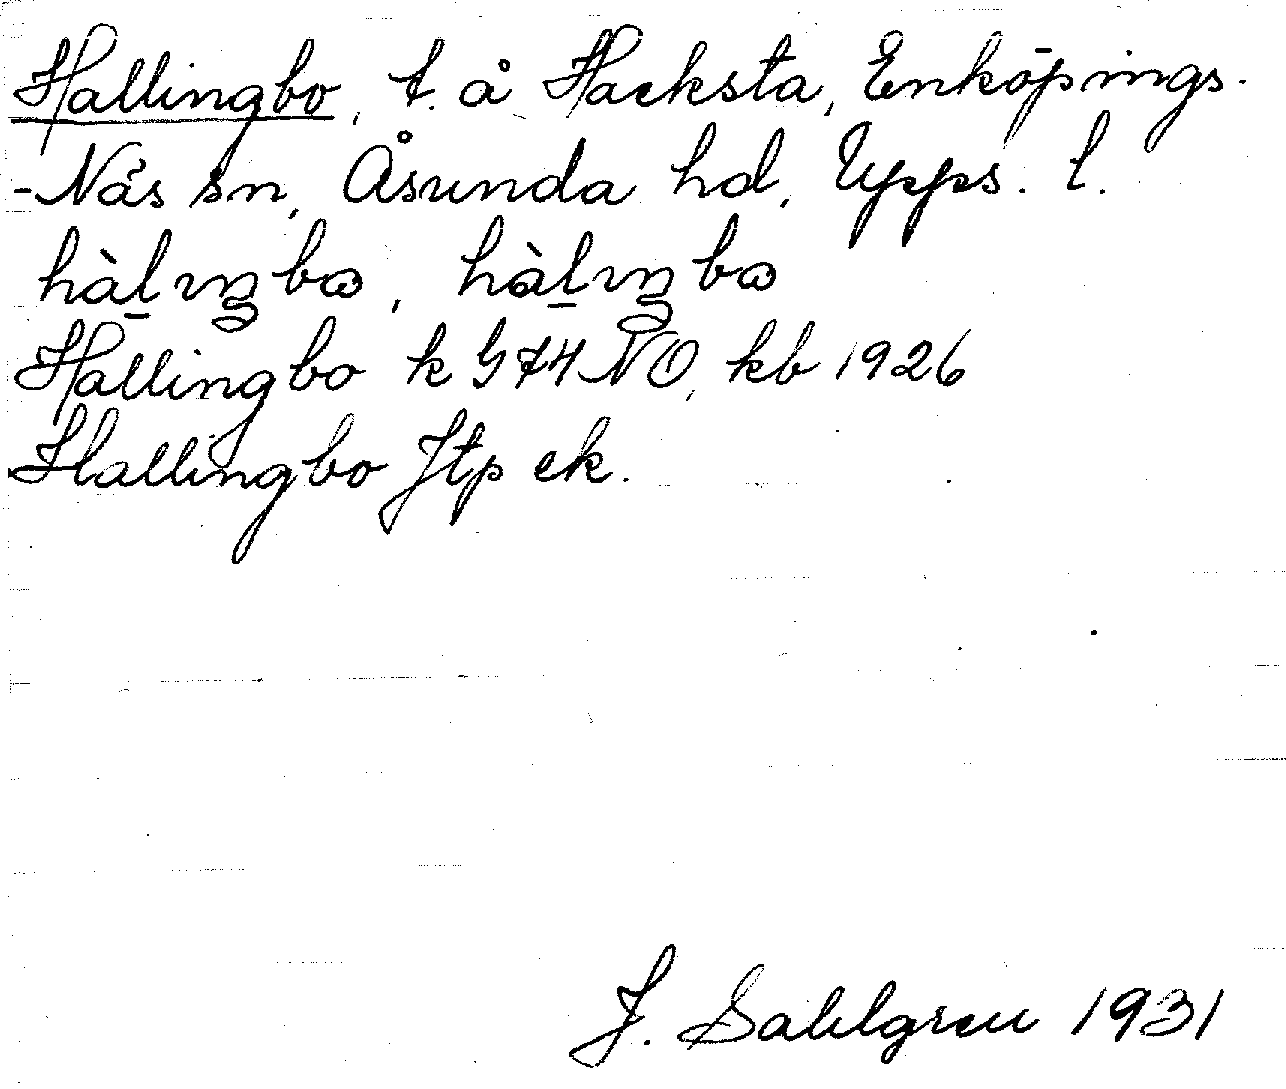 Hallingbo, t. å Hacksta, Enköpings-
-Näs sn, Åsunda hd, Upps. l.
hàḻıŋbɷ, hàḻıŋbɷ
Hallingbo k G 74 NO, kb 1926
Hallingbo Jtp ek.
J. Sahlgren 1931